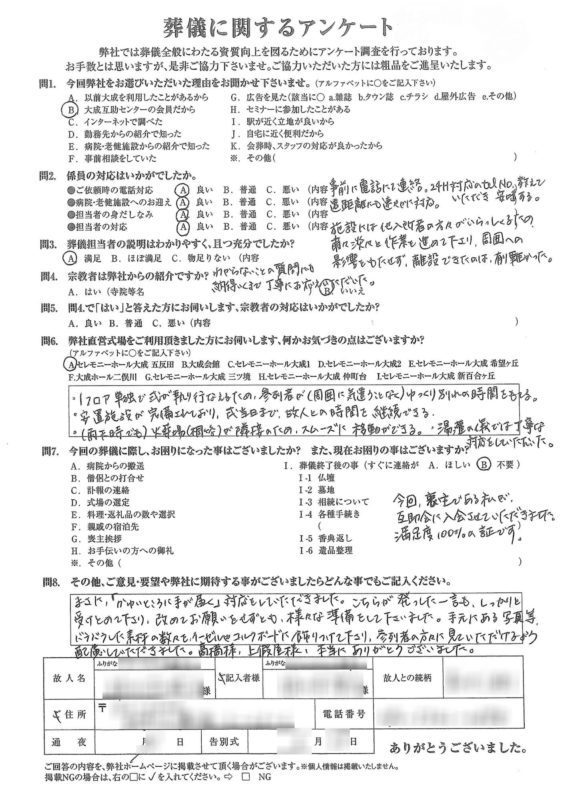 葬儀に関するアンケート
弊社では葬儀全般にわたる資質向上を図るためにアンケート調査を行っております。
お手数とは思いますが、是非ご協力下さいませ。ご協力いただいた方には粗品をご進呈いたします。
問1. 今回弊社をお選びいただいた理由をお聞かせ下さいませ。(アルファベットに○をご記入下さい)
A. 以前大成を利用したことがあるから
B. 大成互助センターの会員だから
C. インターネットで調べた
D. 勤務先からの紹介で知った
E. 病院・老健施設からの紹介で知った
F. 事前相談をしていた
G. 広告を見た(該当に○ a.雑誌 b.タウン誌 c.チラシ d.屋外広告 e.その他)
H. セミナーに参加したことがある
I. 駅が近く立地が良いから
J. 自宅に近く便利だから
K. 会葬時、スタッフの対応が良かったから
※. その他( )
問2. 係員の対応はいかがでしたか。
●ご依頼時の電話対応 A. 良い B. 普通 C. 悪い (内容
●病院・老健施設へのお迎え A. 良い B. 普通 C. 悪い (内容
●担当者の身だしなみ A. 良い B. 普通 C. 悪い (内容
●担当者の対応 A. 良い B. 普通 C. 悪い (内容
事前に電話にて連絡。24H対応のtel No.教えて
いただき 安心する。
遠距離にも速やか対応。
施設には他入所者の方々がいらっしゃるため
粛々淡々と作業を進めて下さり、周囲への
影響をもたせず、離設できたのは、有難かった。
問3. 葬儀担当者の説明はわかりやすく、且つ充分でしたか?
A. 満足 B. ほぼ満足 C. 物足りない (内容
わからないことの質問にも
納得いくまで丁寧にお応えいただいた。
問4. 宗教者は弊社からの紹介ですか?
A. はい (寺院等名 B. いいえ
問5. 問4.で「はい」と答えた方にお伺いします、宗教者の対応はいかがでしたか?
A. 良い B. 普通 C. 悪い (内容 )
問6. 弊社直営式場をご利用頂きました方にお伺いします、何かお気づきの点はございますか?
(アルファベットに○をご記入下さい)
A.セレモニーホール大成 五反田 B.大成会館 C.セレモニーホール大成1 D.セレモニーホール大成2 E.セレモニーホール大成 希望ヶ丘
F.大成ホール二俣川 G.セレモニーホール大成 三ツ境 H.セレモニーホール大成 仲町台 I.セレモニーホール大成 新百合ヶ丘
・1フロア 単独で式が執り行なえるため、参列者が(周囲に気遣うことなく)ゆっくり別れの時間をもてる。
・安置施設が完備されており、式当日まで、故人との時間を継続できる。
・(雨天時でも)火葬場(桐ヶ谷)が隣接のため、スムーズに移動ができる。・湯灌の儀では丁寧な
対応をしていただいた。
問7. 今回の葬儀に際し、お困りになった事はございましたか? また、現在お困りの事はございますか?
A. 病院からの搬送
B. 僧侶との打合せ
C. 訃報の連絡
D. 式場の選定
E. 料理・返礼品の数や選択
F. 親戚の宿泊先
G. 喪主挨拶
H. お手伝いの方への御礼
※. その他( )
I. 葬儀終了後の事 (すぐに連絡が A. ほしい B 不要)
I-1 仏壇
I-2 墓地
I-3 相続について
I-4 各種手続き
( )
I-5 香典返し
I-6 遺品整理
今回、喪主である私が、
互助会に入会させていただきました。
満足度100%の証です。
問8. その他、ご意見・要望や弊社に期待する事がございましたらどんな事でもご記入ください。
まさに、「かゆいところに手が届く」対応をしていただきました。こちらが発っした一言も、しっかりと
受けとめて下さり、改めてお願いをせずとも、様々な準備をして下さいました。手元にある写真等、
配慮していただきました。高橋様、上假屋様、本当にありがとうございました。
故人名 ふりがな 様
記入者様 ふりがな 様
故人との続柄
ご住所 〒
電話番号
通夜 月 日
告別式 月 日
ありがとうございました。
ご回答の内容を、弊社ホームページに掲載させて頂く場合がございます。※個人情報は掲載いたしません。
掲載NGの場合は、右の□に✓を入れてください。⇨ □ NG